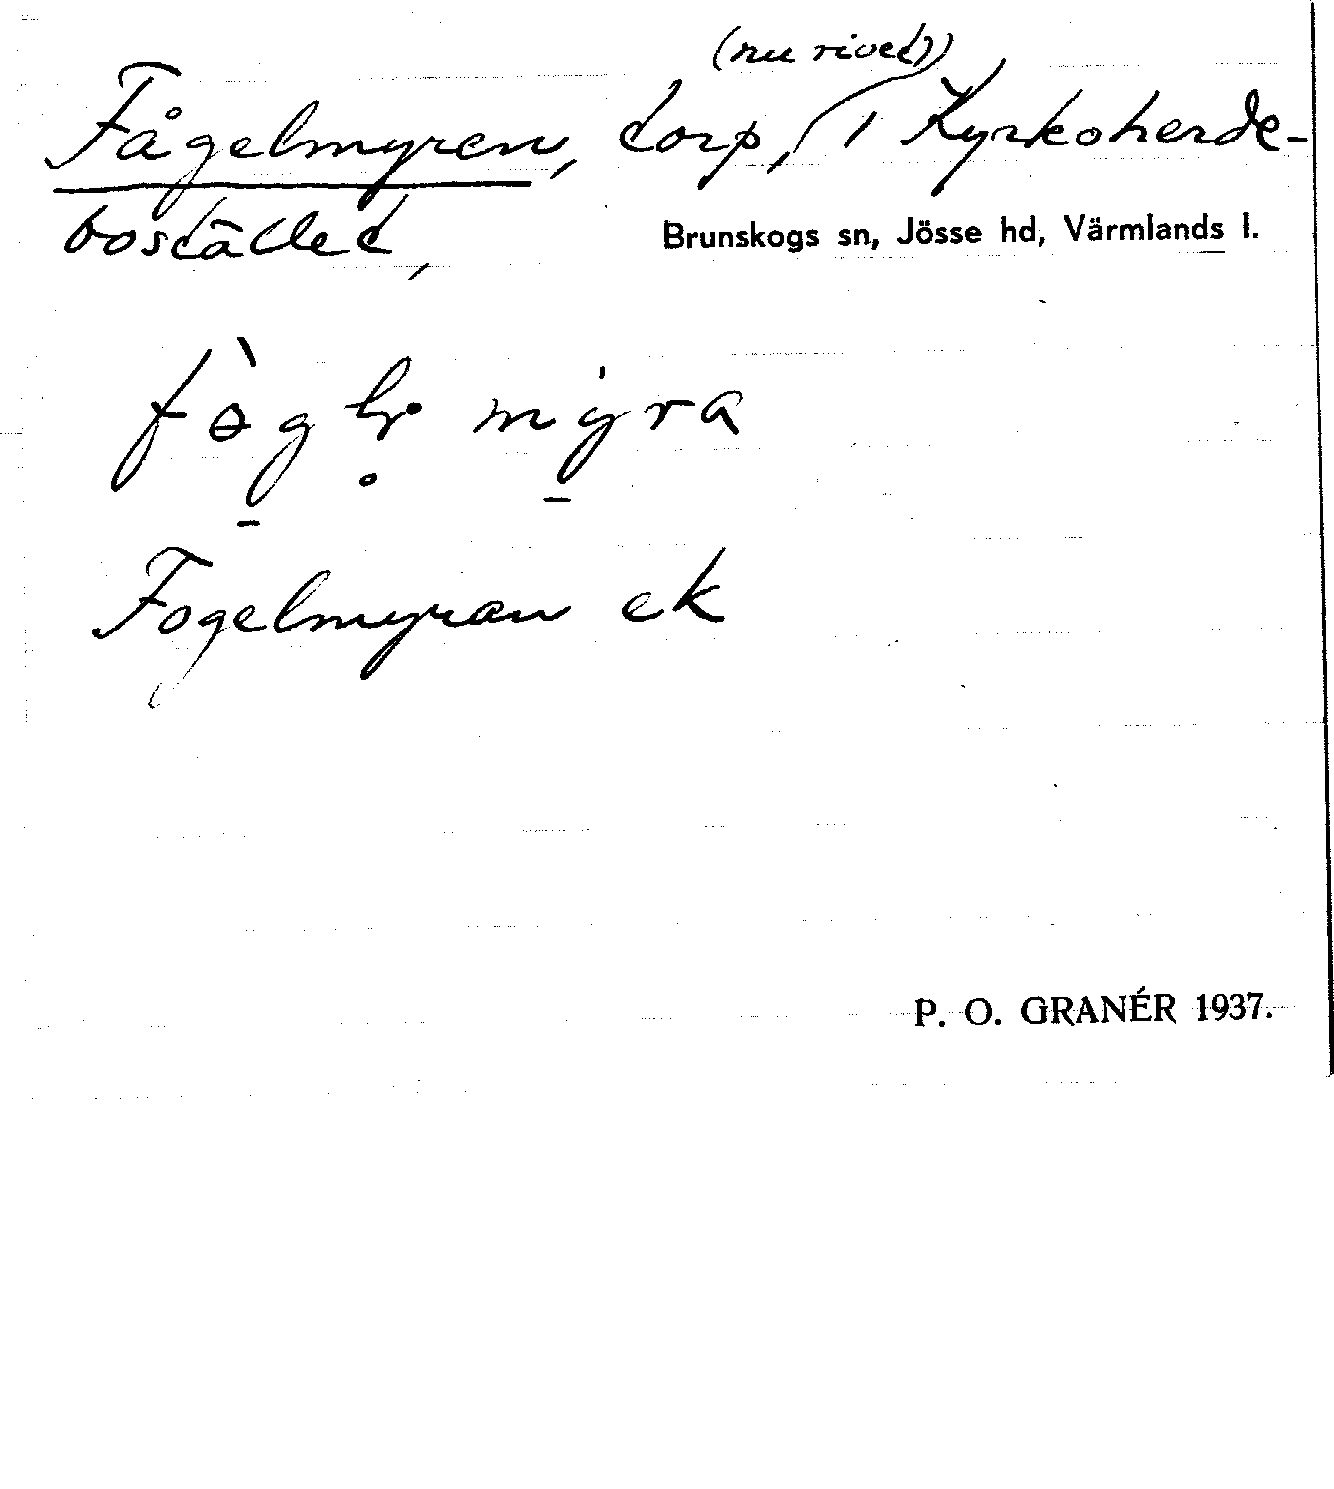 (nu rivet)
Fågelmyren, torp, i Kyrkoherde-
bostället,
Brunskogs sn, Jösse hd, Värmlands l.
Fogelmyran ek
P. O. GRANÉR 1937.